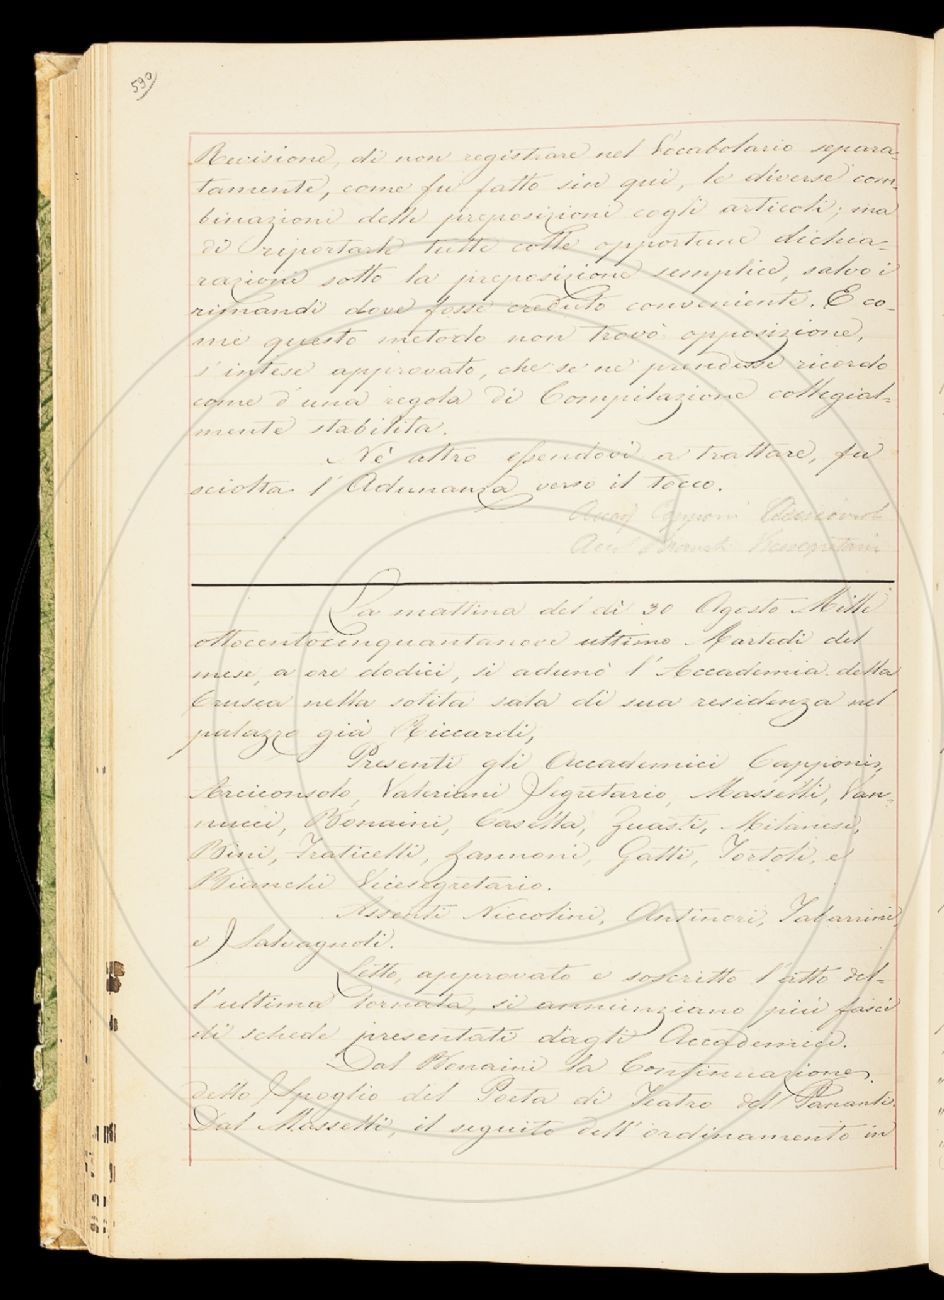 590
Revisione, di non registrare nel Vocabolario separa-
tamente, come fu fatto sin qui, le diverse com-
binazioni delle preposizioni cogli articoli; ma
di riportarle tutte colle opportune dichia-
razioni sotto la preposizione semplice, salvo i
rimandi dove fosse creduto conveniente. E co-
me questo metodo non trovò opposizione,
s'intese approvato, che se ne prendesse ricordo
come d'una regola di Compilazione collegial-
mente stabilita.
Nè altro essendovi a trattare, fu
sciolta l'Adunanza verso il tocco.
Capponi Arciconsolo
La mattina del dì 30 Agosto Mille
ottocentocinquantanove ultimo Martedì del
mese, a ore dodici, si adunò l'Accademia della
Crusca nella solita sala di sua residenza nel
palazzo già Riccardi,
Presenti gli Accademici Capponi,
Arciconsolo, Valeriani Segretario, Masselli, Van-
nucci, Bonaini, Casella, Guasti, Milanesi,
Bini, Fraticelli, Zannoni, Gatti, Tortoli, e
Bianchi Vicesegretario.
Assenti Niccolini, Antinori, Tabarrini,
e Salvagnoli.
Letto, approvato e soscritto l'atto del-
l'ultima tornata, si annunziano più fasci
di schede presentati dagli Accademici.
Dal Bonaini la Continuazione
dello Spoglio del Poeta di Teatro del Pananti.
Dal Masselli, il seguito dell'ordinamento in